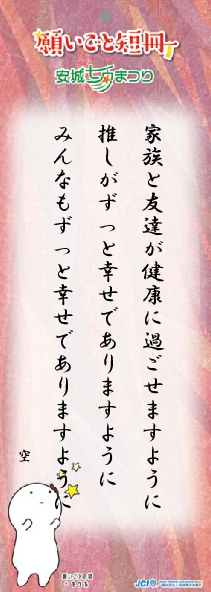 願いごと短冊
安城七夕まつり
家族と友達が健康に過ごせますように
推しがずっと幸せでありますように
みんなもずっと幸せでありますように
空
願いごとの妖精
きーぼー
JCI